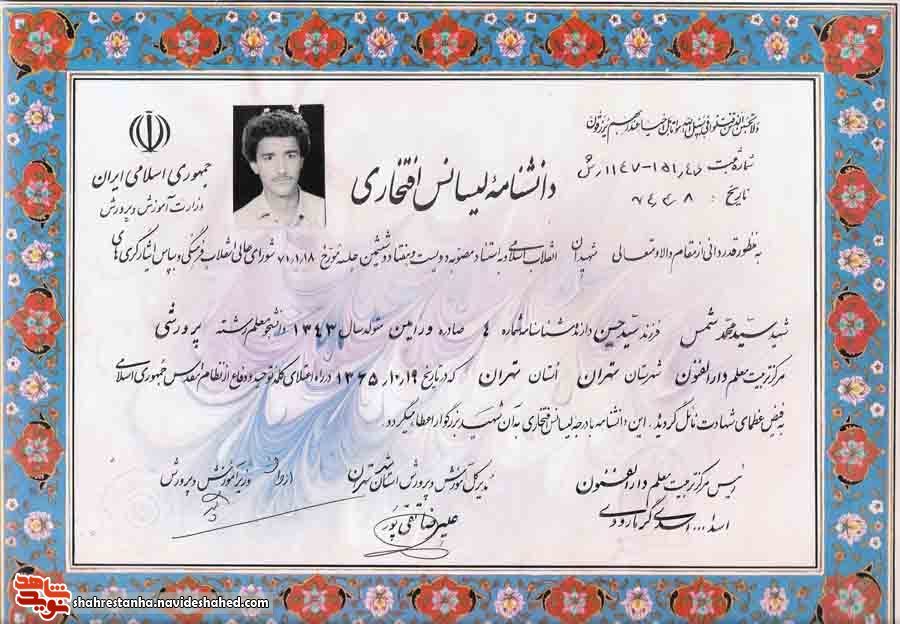 ولا تحسبن الذین قتلوا فی سبیل الله امواتا بل احیاء عند ربهم یرزقون
جمهوری اسلامی ایران
وزارت آموزش و پرورش
دانشنامهٔ لیسانس افتخاری
شماره ثبت
تاریخ :
به منظور قدردانی از مقام والا و متعالی شهیدان انقلاب اسلامی و به استناد مصوبه دویست و هفتاد و ششمین جلسه مورخ ۷۱٫۱٫۱۸ شورای عالی انقلاب فرهنگی و بپاس ایثارگری های
شهید سید محمد شمس فرزند سید حسین دارنده شناسنامه شماره صادره ورامین متولد سال ۱۳۴۳ دانشجو معلم رشته پرورشی
مرکز تربیت معلم دارالفنون شهرستان تهران استان تهران که در تاریخ ۱۳۶۵٫۱۰٫۱۹ در راه اعلای کلمه توحید و دفاع از نظام مقدس جمهوری اسلامی
به فیض عظمای شهادت نائل گردید. این دانشنامه با درجه لیسانس افتخاری بدان شهید بزرگوار اعطا میگردد.
رئیس مرکز تربیت معلم دارالفنون
مدیر کل آموزش و پرورش استان تهران
از طرف وزیر آموزش و پرورش
علیرضا تقی پور
نوید شاهد
shahrestanha.navideshahed.com